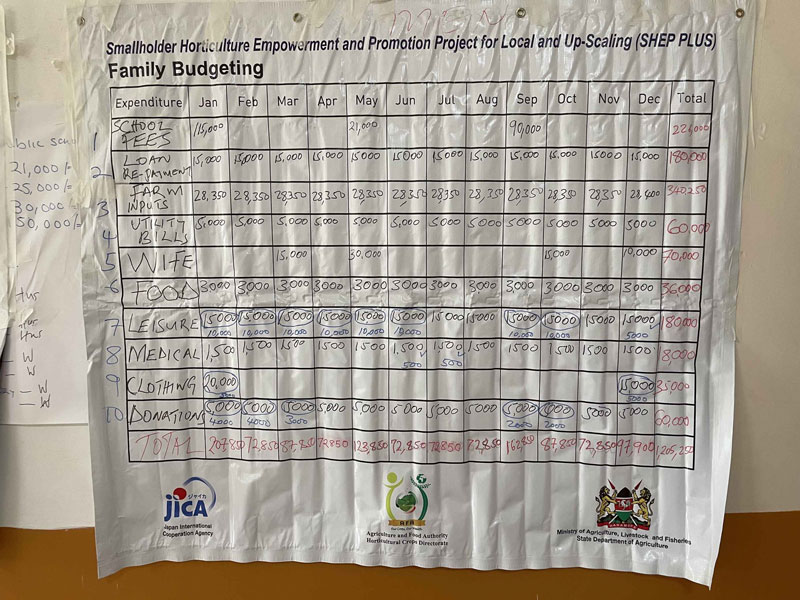 Smallholder Horticulture Empowerment and Promotion Project for Local and Up-Scaling (SHEP PLUS)
Family Budgeting
Expenditure Jan Feb Mar Apr May Jun Jul Aug Sep Oct Nov Dec Total
1 SCHOOL FEES 115,000 21,000 90,000
2 LOAN REPAIMENT 15,000 15,000 15,000 15,000 15000 15000 15000 15,000 15,000 15,000 15000 15,000 180,000
3 FARM INPUTS 28,350 28,350 28350 28,350 28350 28350 28350 28,350 28350 28,350 28,350 28,400 340250
4 UTILITY BILLS 5,000 5,000 5,000 5,000 5000 5,000 5000 5000 5000 5000 5000 5000 60,000
5 WIFE 15,000 30,000 15,000 10,000 70,000
6 FOOD 3000 3,000 3000 3,000 3000 3000 3000 3,000 3,000 3000 3,000 3000 36,000
7 LEISURE 15000 15000 15000 15000 15000 15000 15000 15000 15000 15000 15000 15000 180000
10,000 10,000 10,000 10,000 10,000 10,000 10,000 10,000 5000
8 MEDICAL 1,500 1,500 1500 1500 1500 1,500 1500 1500 1500 1500 1500 1500 18,000
500 500
9 CLOTHING 20,000 15000 35,000
5000 5000
10 DONATIONS 5,000 5000 5000 5,000 5,000 5000 5000 5000 5,000 5000 5000 5000 60,000
4000 4000 3000 2000 2000
TOTAL 207,850 72,850 87,850 72850 123,850 72,850 72850 72,850 162,850 87,850 72,850 97,900 1,205,250
21,000/-
25,000/-
30,000/-
50,000/-
Hrs
Hrs
W
W
W
JICA
Japan International
Cooperation Agency
AFA
Agriculture and Food Authority
Horticultural Crops Directorate
HARAMBEE
Ministry of Agriculture, Livestock and Fisheries
State Department of Agriculture